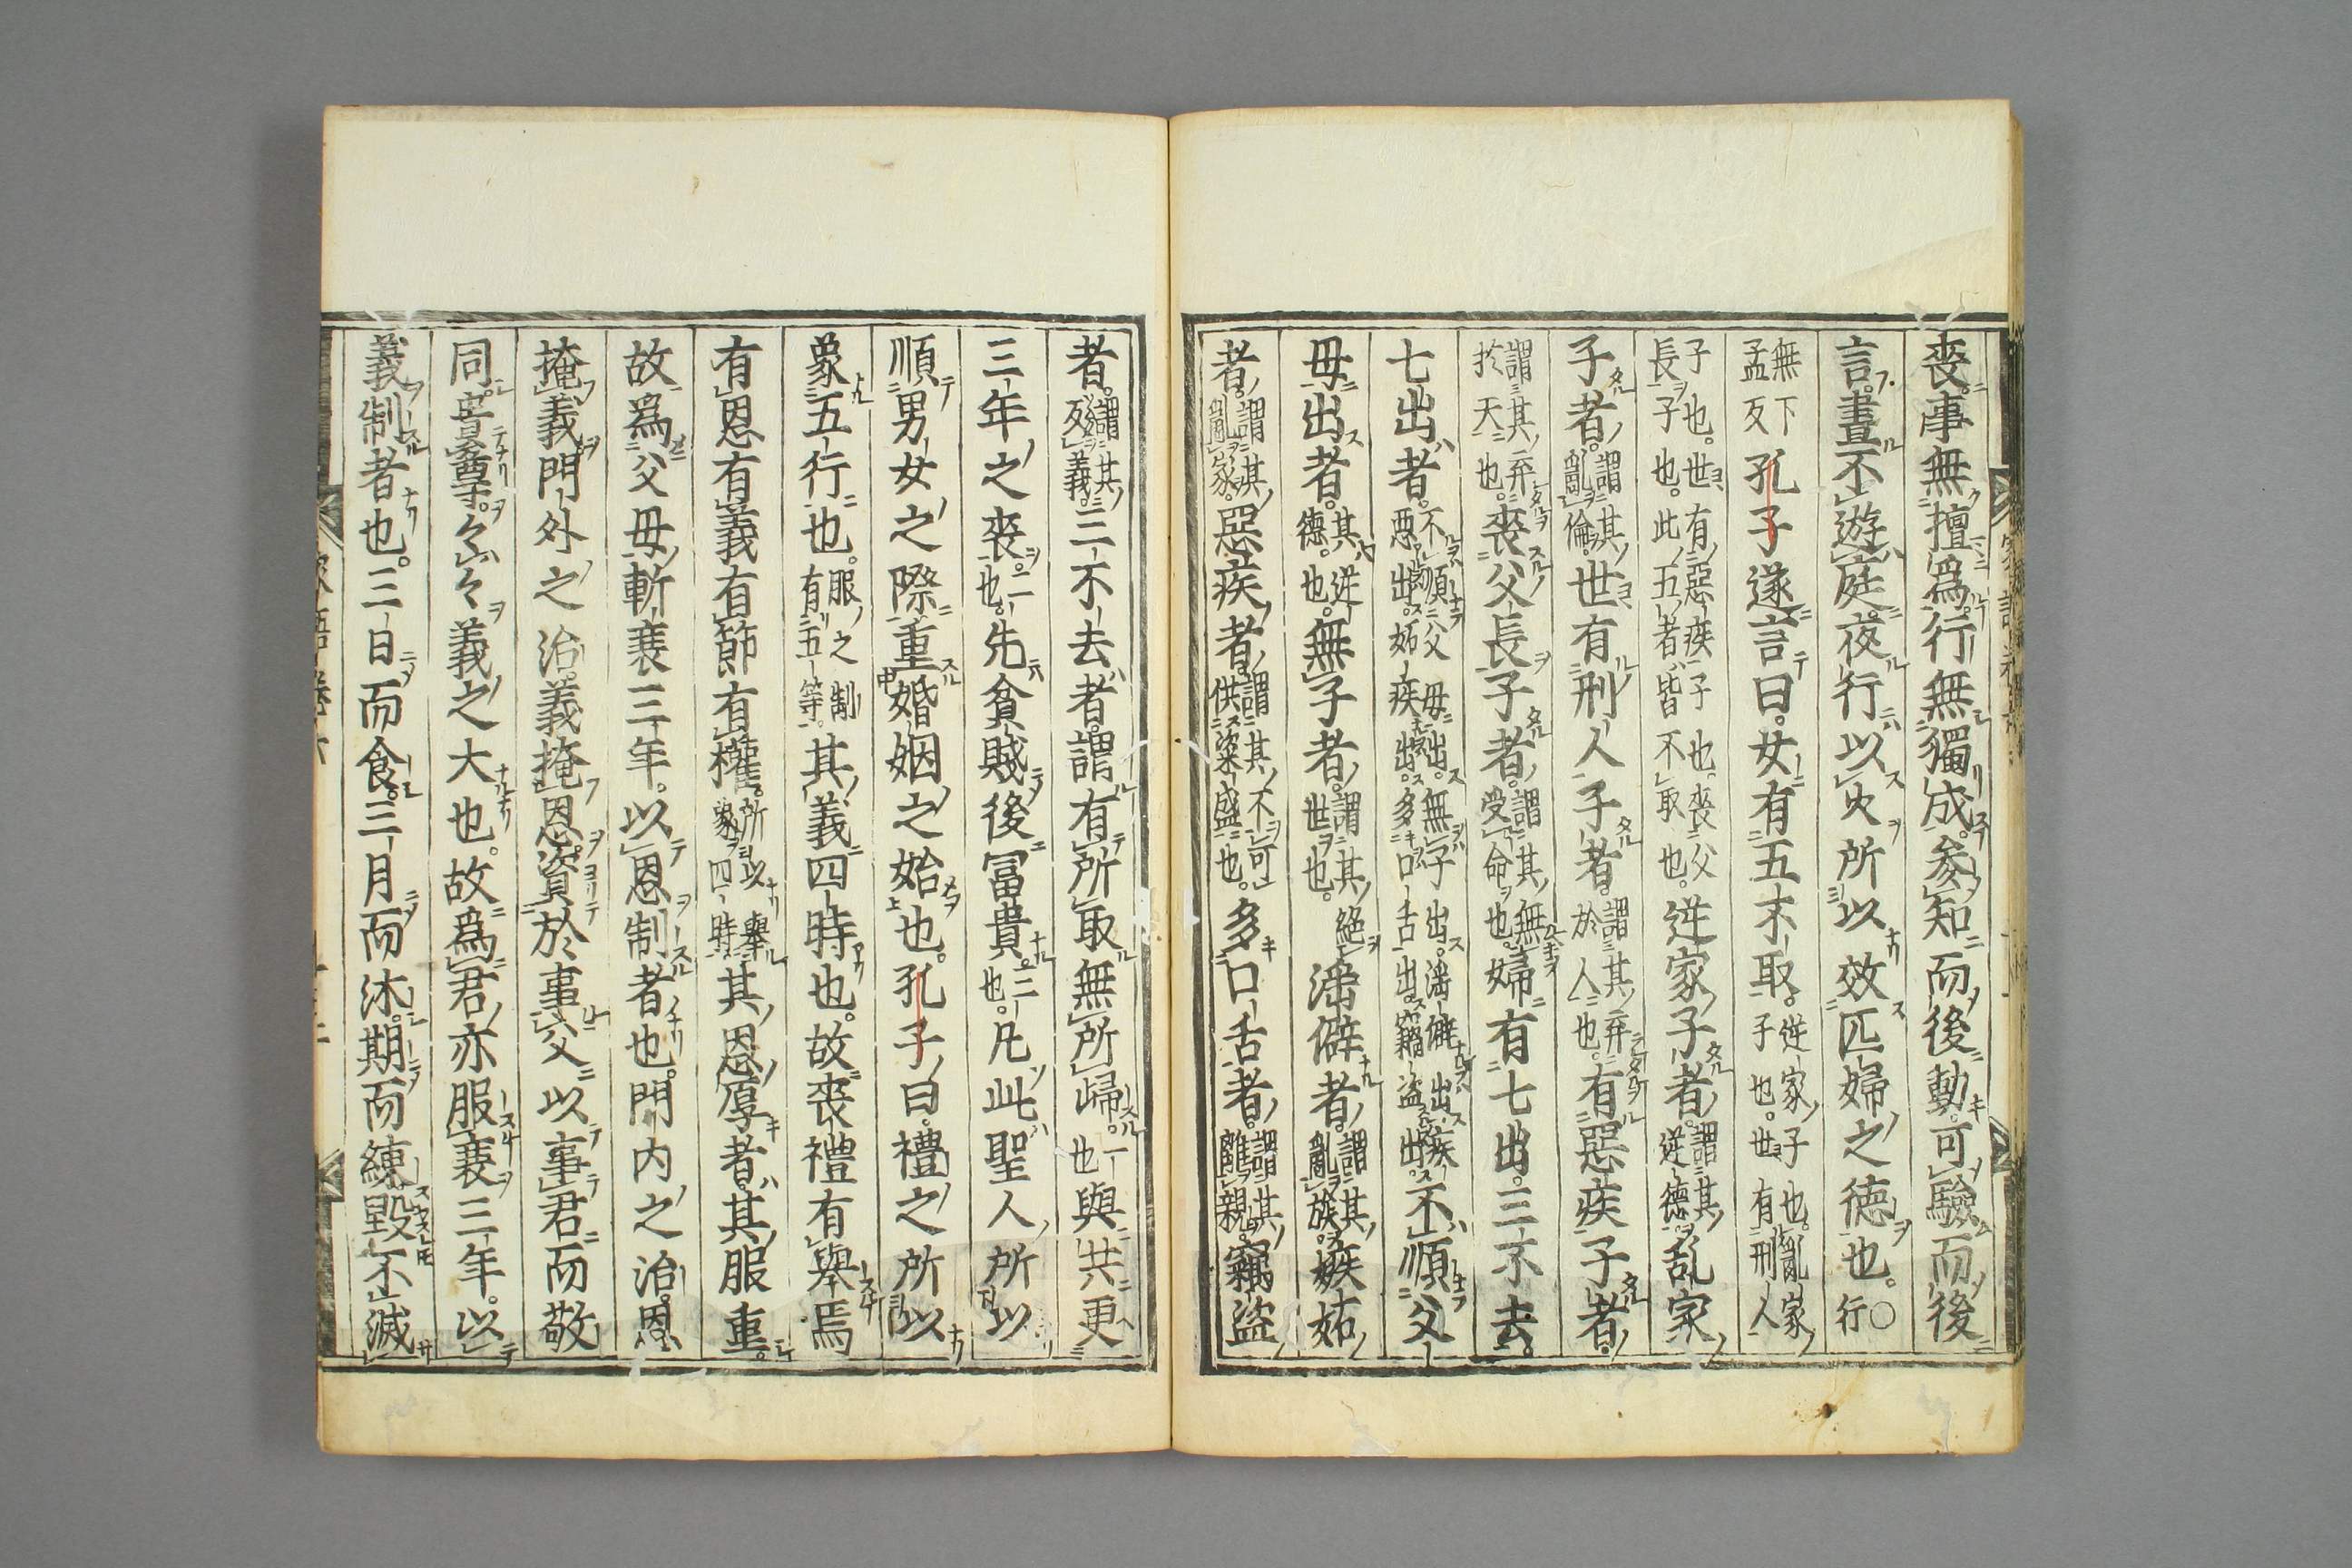 喪事無擅爲行無獨成参知而後動可驗而後
言晝不遊庭夜行以火所以效匹婦之德也○行
無下孟反孔子遂言曰女有五不取逆家子也亂家子也世有刑人
子也世有惡疾子也喪父長子也此五者皆不取也逆家子者謂其逆德乱家
子者謂其亂倫世有刑人子者謂其弃於人也有惡疾子者
謂其弃於天也喪父長子者謂其無受命也婦有七出三不去
七出者不順父母出無子出淫僻出惡疾出妬疾出多口舌出竊盜出不順父
母出者其逆德也無子者謂其絕世也淫僻者謂其亂族嫉妬
者謂其亂家惡疾者謂其不可供粢盛也多口舌者謂其離親竊盜
者謂其反義三不去者謂有所取無所歸一也與共更
三年之喪二也先貧賤後冨貴三也凡此聖人所以
順男女之際重婚姻之始也孔子曰禮之所以
象五行也服之制有五等其義四時也故喪禮有舉焉
有恩有義有節有權所以舉象四時其恩厚者其服重
故爲父母斬衰三年以恩制者也門内之治恩
掩義門外之治義掩恩資於事父以事君而敬
同尊尊々貴々義之大也故爲君亦服衰三年以
義制者也三日而食三月而沐期而練毀不滅